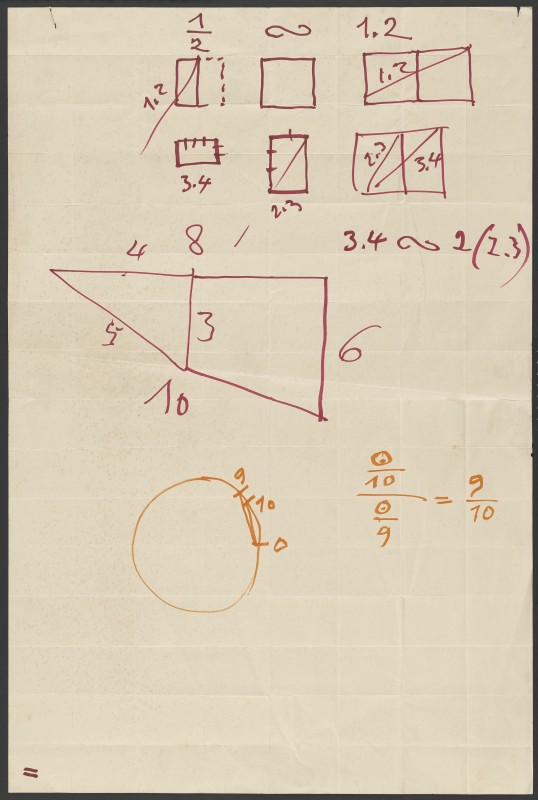 1/2 ∾ 1.2
1.2
1.2
3.4
2.3
2.3 3.4
3.4 ∾ 2(2.3)
4 8
5 3
6
10
9
10
0
0/10 / 0/9 = 9/10
=